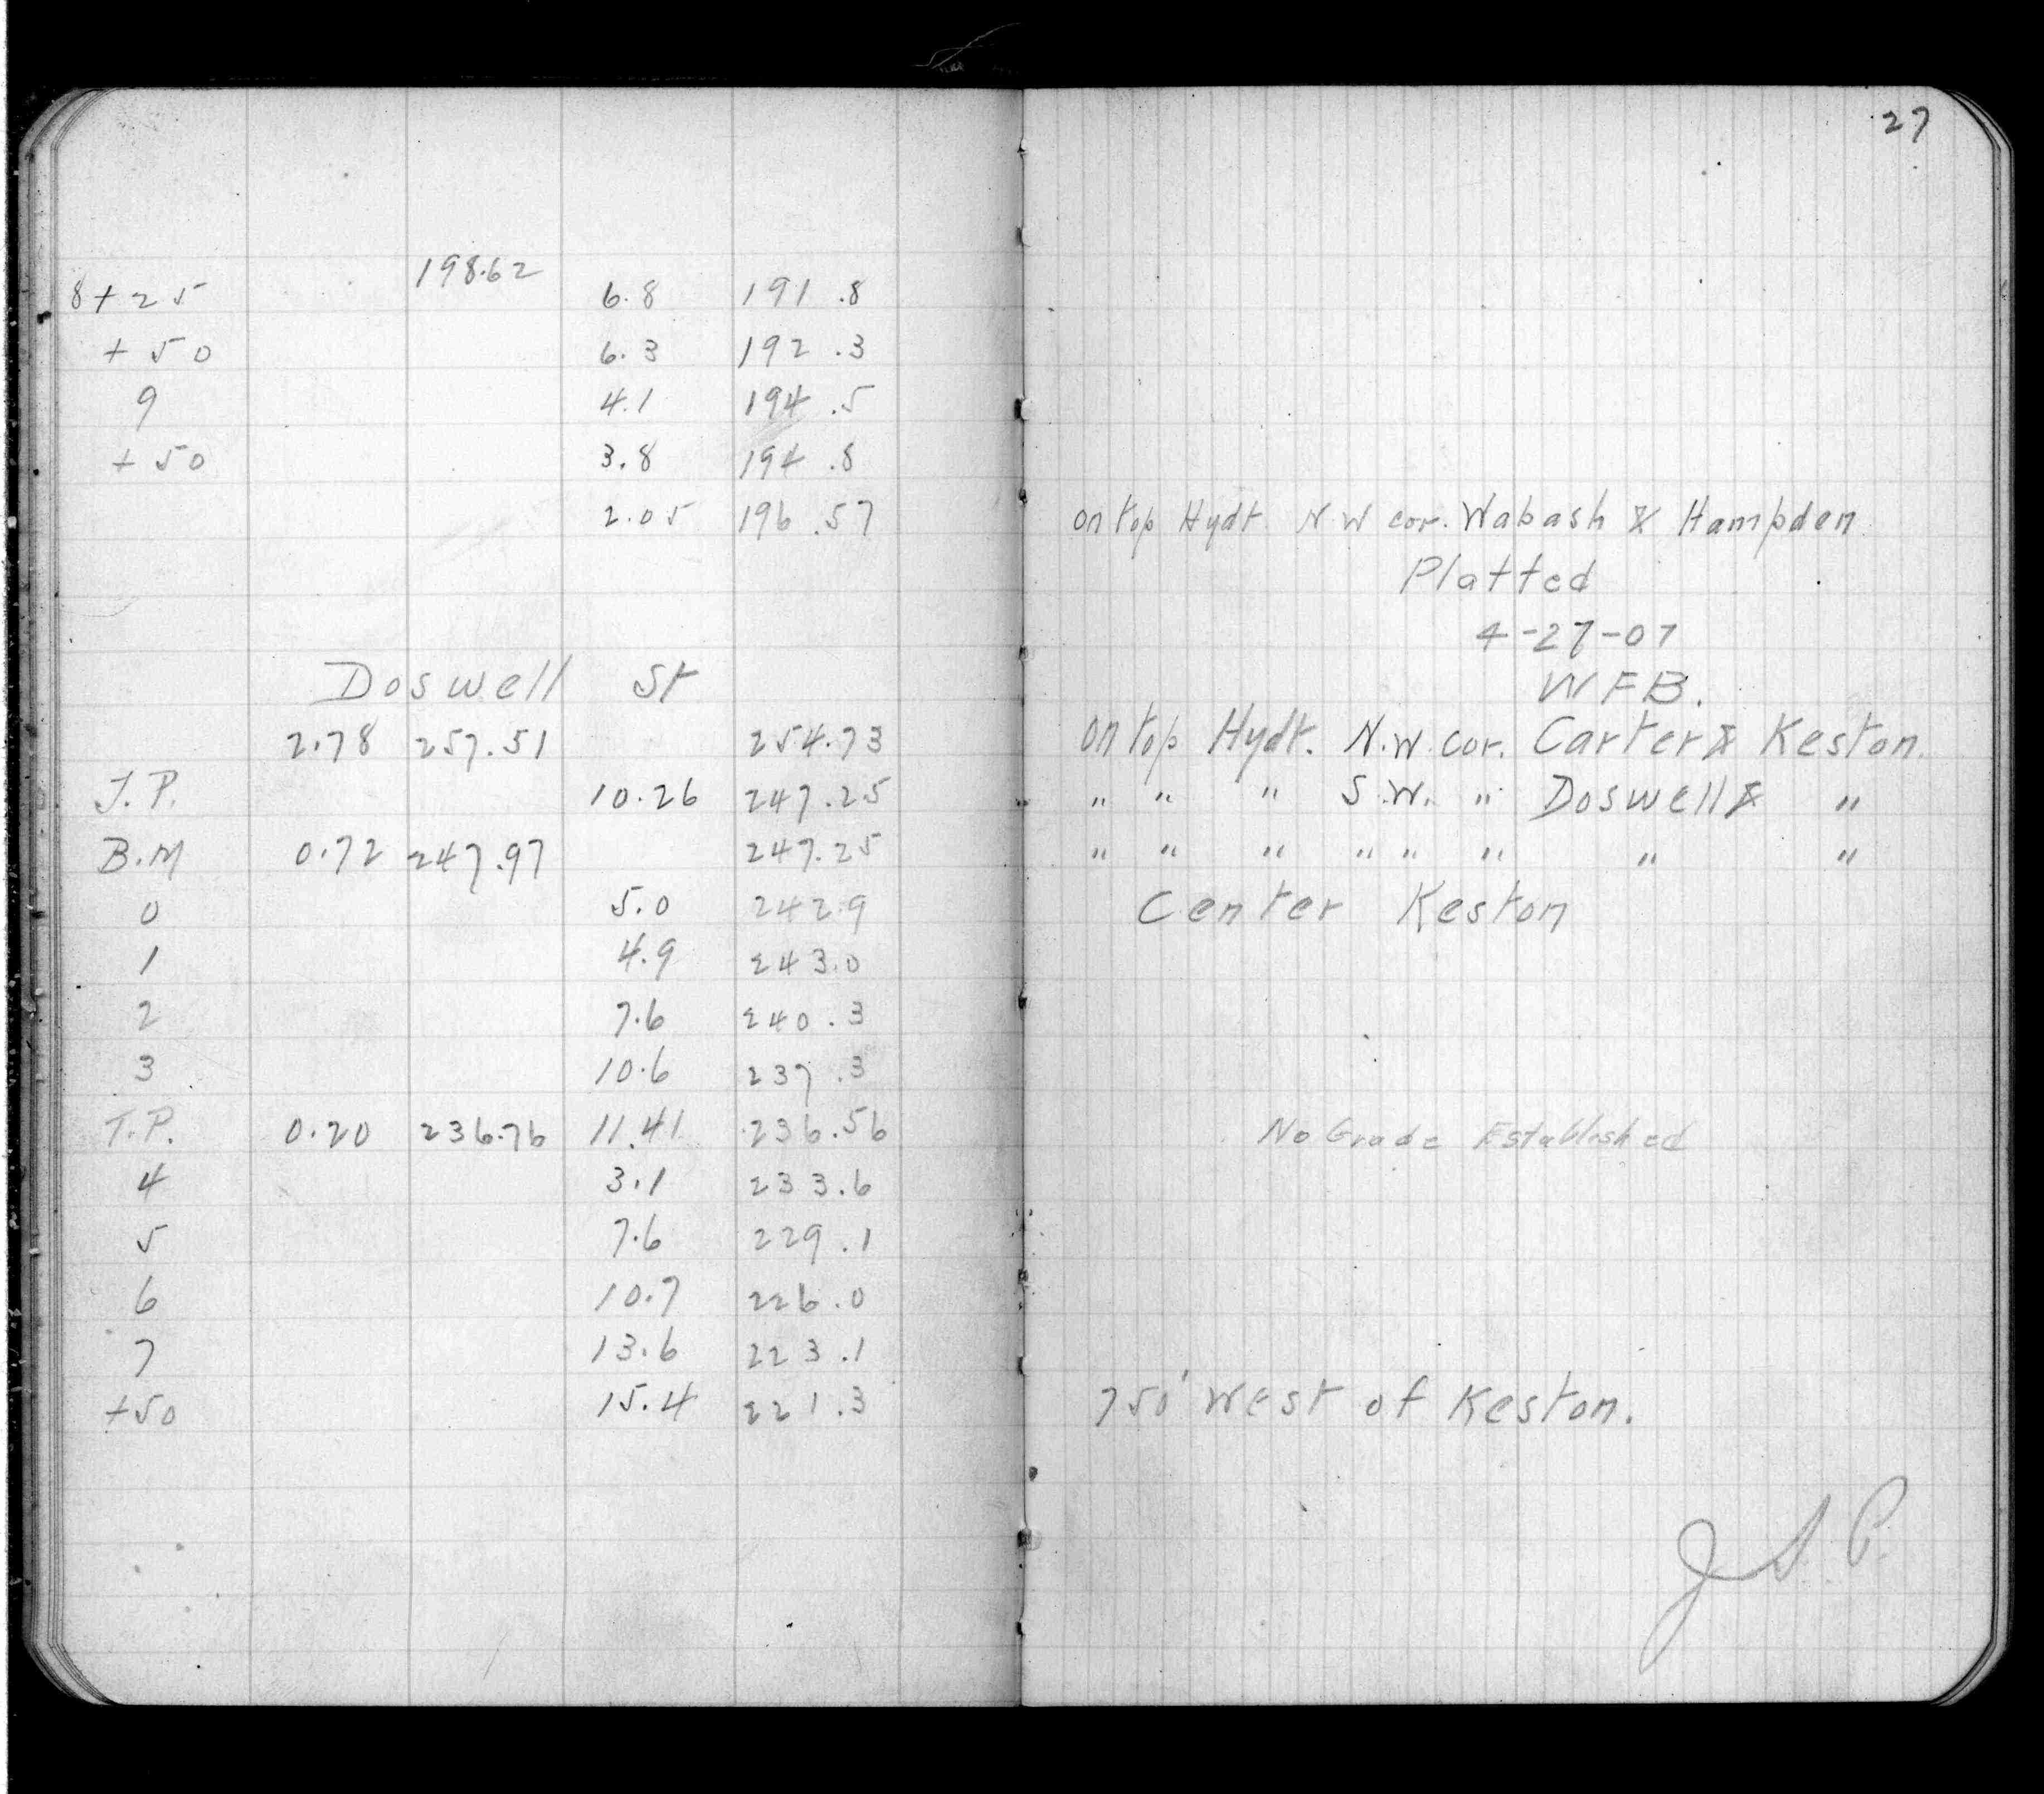 27
198.62
8+25 6.8 191.8
+50 6.3 192.3
9 4.1 194.5
+50 3.8 194.8
2.05 196.57 on top Hydt. N.W cor. Wabash & Hampden
Platted
4-27-07
Doswell St WFB.
2.78 257.51 254.73 on top Hydt. N.W. cor. Carter & Keston.
T.P. 10.26 247.25 " " " S.W. " Doswell & "
B.M 0.72 247.97 247.25 " " " " " " " "
0 5.0 242.9 Center Keston
1 4.9 243.0
2 7.6 240.3
3 10.6 237.3
T.P. 0.20 236.76 11.41 236.56 No Grade Established
4 3.1 233.6
5 7.6 229.1
6 10.7 226.0
7 13.6 223.1
+50 15.4 221.3 750' West of Keston.
J.S.P.